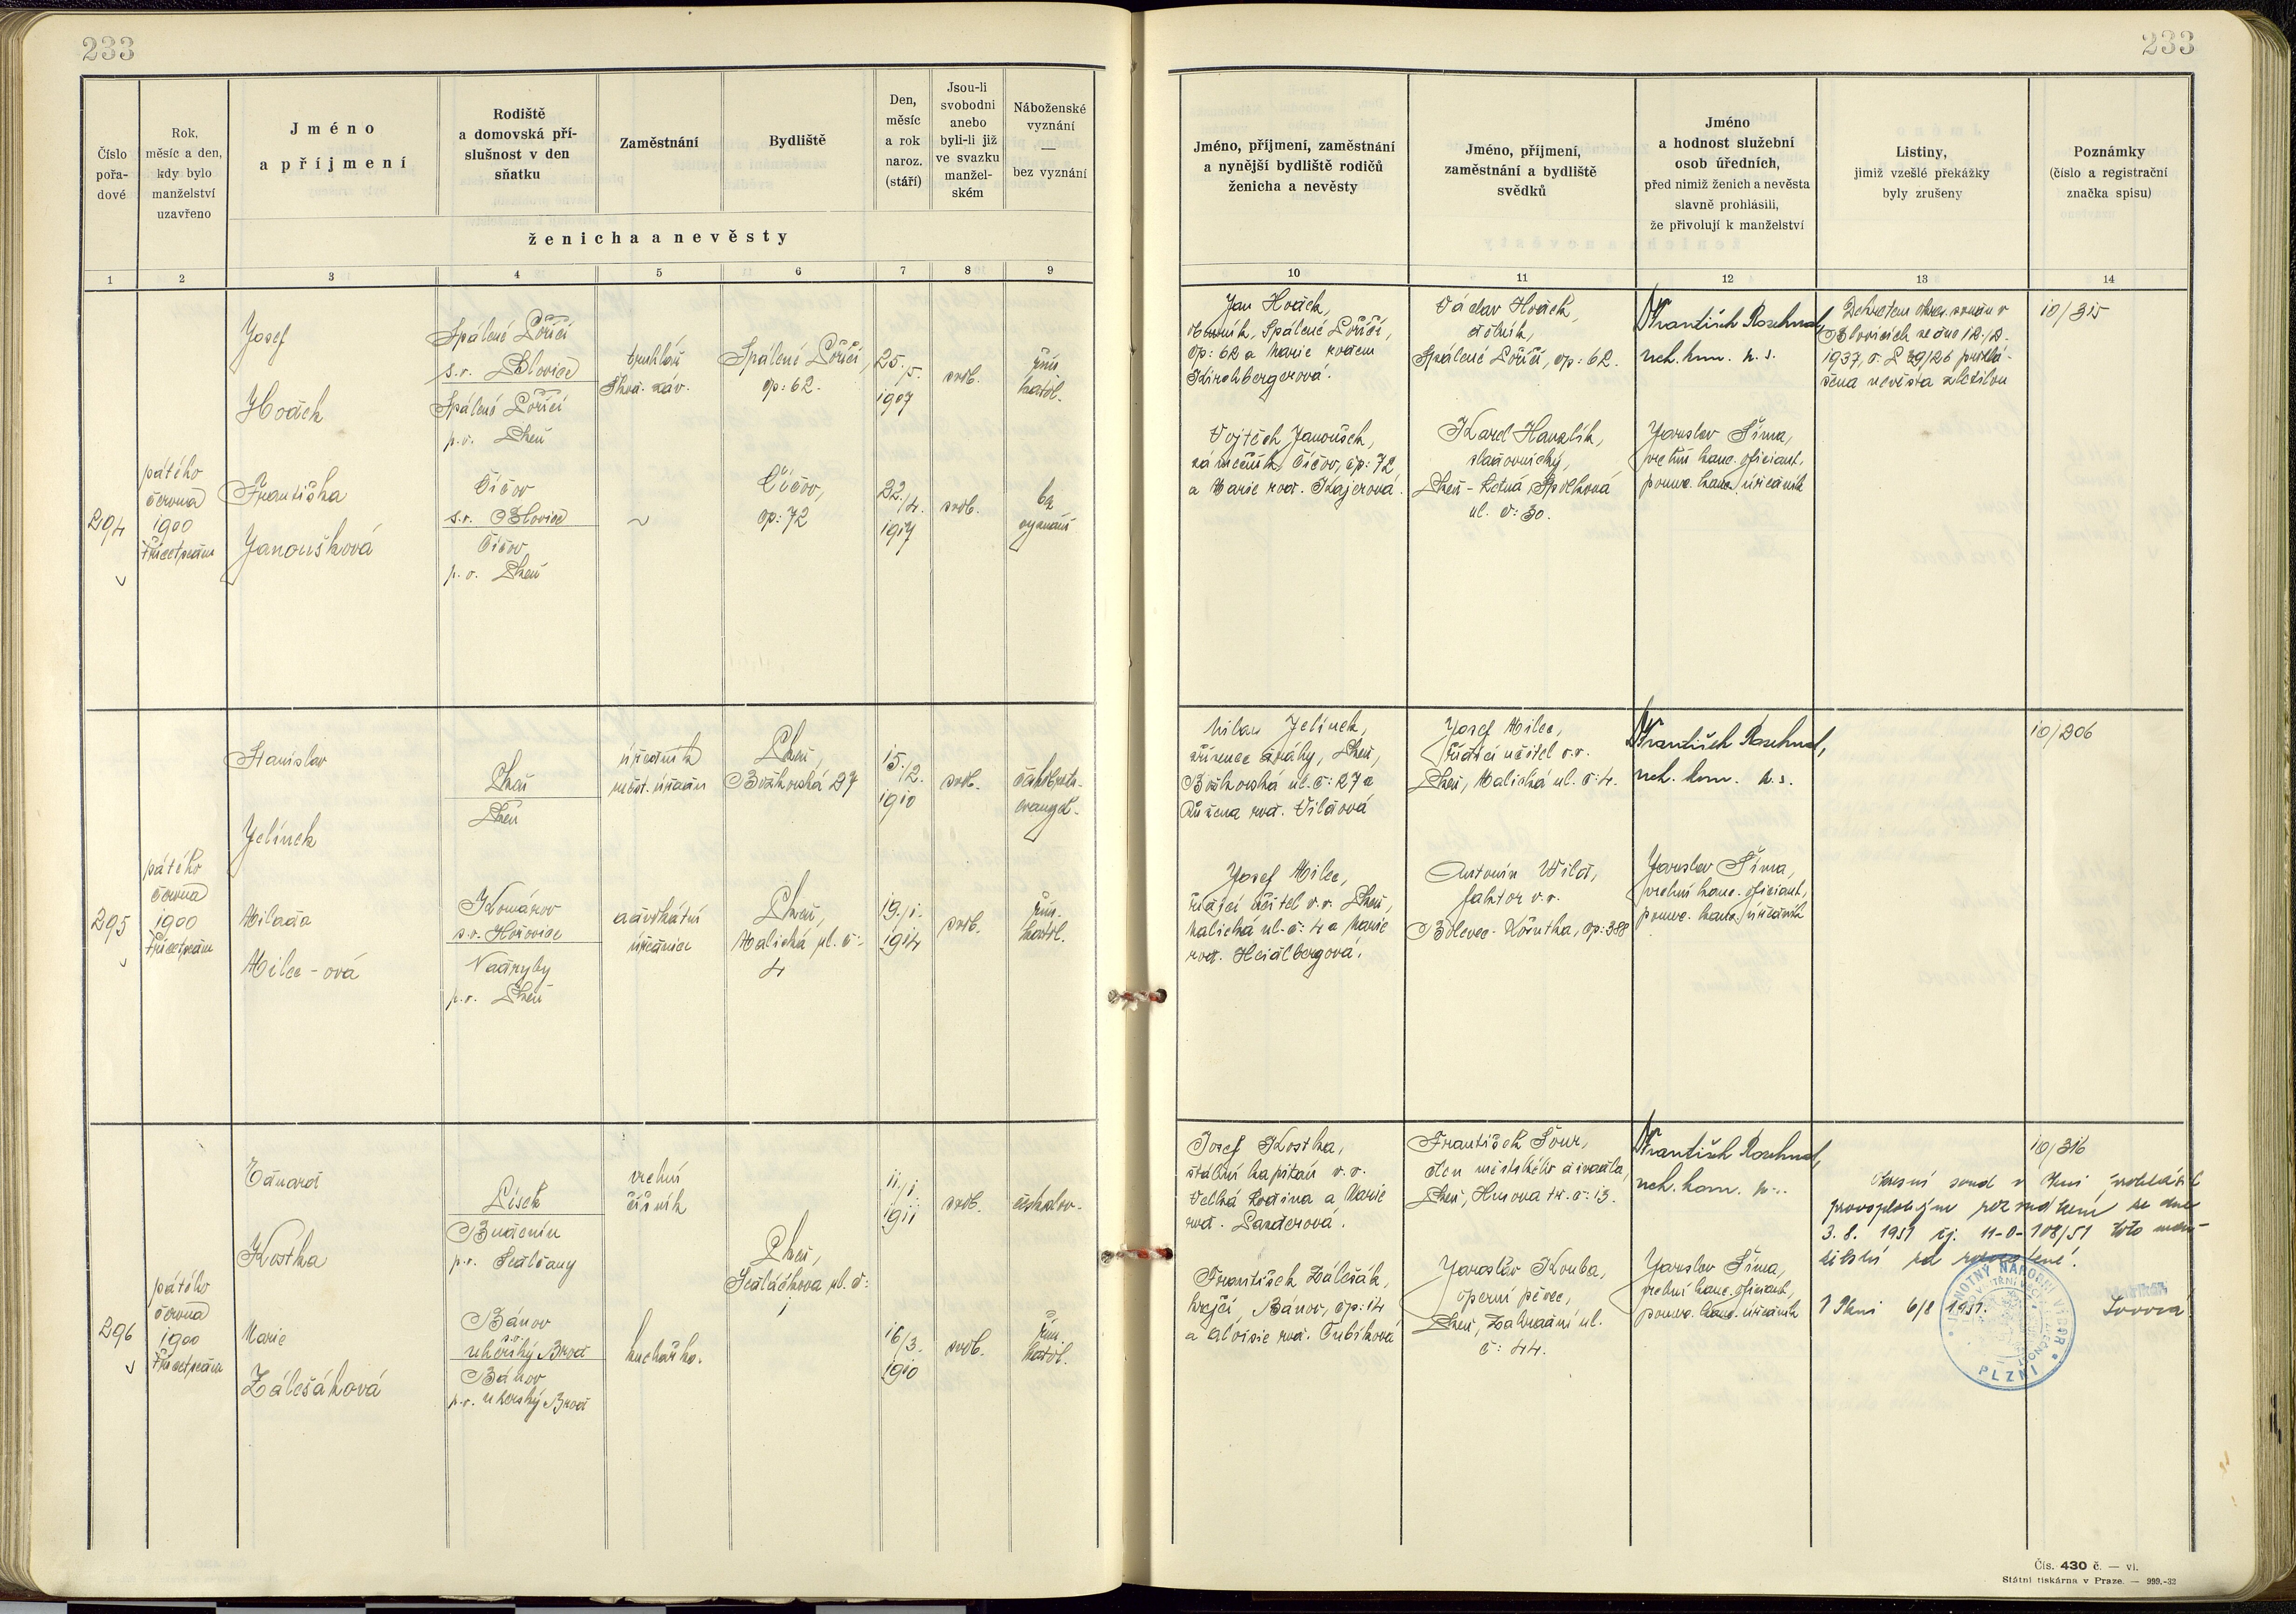 233
233
Číslo
pořa-
dové
Rok,
měsíc a den,
kdy bylo
manželství
uzavřeno
Jméno
a příjmení
Rodiště
a domovská pří-
slušnost v den
sňatku
Zaměstnání
Bydliště
Den,
měsíc
a rok
naroz.
(stáří)
Jsou-li
svobodni
anebo
byli-li již
ve svazku
manžel-
ském
Náboženské
vyznání
—
bez vyznání
ženicha a nevěsty
1 2 3 4 5 6 7 8 9
Jméno, příjmení, zaměstnání
a nynější bydliště rodičů
ženicha a nevěsty
Jméno, příjmení,
zaměstnání a bydliště
svědků
Jméno
a hodnost služební
osob úředních,
před nimiž ženich a nevěsta
slavně prohlásili,
že přivolují k manželství
Listiny,
jimiž vzešlé překážky
byly zrušeny
Poznámky
(číslo a registrační
značka spisu)
10 11 12 13 14
294
pátého
června
1900
třicetpeám
Josef
Hodek
Spálené Poříčí
s.o. Blovice
Spálené Poříčí
p.o. Plzeň
truhlář
Škod. záv.
Spálené Poříčí,
čp: 62.
25./5.
1907
svob.
řím.
katol.
Františka
Janoušková
Čičov
s.o. Blovice
Čičov
p.o. Plzeň
~
Čičov,
čp: 72
22./4.
1917
svob.
bez
vyznání
Jan Hodek,
Spálené Poříčí,
čp: 62 a Marie rodem
Kirchbergerová.
Vojtěch Janoušek,
zámečník, Čičov, čp: 72
a Marie roz. Kajerová.
Václav Hodek,
dělník,
Spálené Poříčí, čp: 62.
Karel Hanzlík,
Plzeň - Letná, Spolková
ul. č: 30.
František Rosehnal,
nch. kom. p. s.
Jaroslav Šíma,
vrchní kanc. oficiant,
pomoc. kanc. úředník
Dekretem okres. soudu v
Blovicích ze dne 12./2.
1937, č. P 29/26 prohlá-
šena nevěsta zletilou
10/315
295
pátého
června
1900
třicetpeám
Stanislav
Jelínek
Plzeň
Plzeň
úředník
Plzeň,
Božkovská 27
15./2.
1910
svob.
evangel.
Milada
Milec-ová
Komárov
s.o. Hořovice
Nadryby
p.o. Plzeň
advokátní
úřednice
Plzeň,
Malická ul. č:
4
19./1.
1914
svob.
řím.
katol.
Milan Jelínek,
zřízenec dráhy, Plzeň,
Božkovská ul. č: 27 a
Růžena roz. Vildová
Josef Milec,
řídící učitel v.v. Plzeň,
Malická ul. č: 4 a Marie
roz. Heidlbergová.
Josef Milec,
řídící učitel v.v.
Plzeň, Malická ul. č: 4.
Antonín Wild,
faktor v.v.
Bolevec - Košutka, čp: 388
František Rosehnal,
nch. kom. p. s.
Jaroslav Šíma,
vrchní kanc. oficiant,
pomoc. kanc. úředník
10/206
296
pátého
června
1900
třicetpeám
Eduard
Kostka
Písek
Budenín
p.o. Sedlčany
vrchní
číšník
Plzeň,
Sedláčkova ul. č:
1
11./1.
1911
svob.
českoslov.
Marie
Zálešáková
Bánov
s.o.
Uherský Brod
Bánov
p.o. Uherský Brod
kuchařka.
16/3.
1910
svob.
řím.
katol.
Josef Kostka,
štábní kapitán v.v.
Velká Ledina a Marie
roz. Landerová.
František Zálešák,
krejčí, Bánov, čp: 14
a Aloisie roz. Čubíková
František Šour,
člen městského divadla,
Plzeň, Husova tř. č: 13.
Jaroslav Kouba,
operní pěvec,
Plzeň, Zahradní ul.
č: 44.
František Rosehnal,
nch. kom. p. s.
Jaroslav Šíma,
vrchní kanc. oficiant,
pomoc. kanc. úředník
10/316
Okresní soud v Plzni prohlásil
pravoplatným rozsudkem ze dne
3. 8. 1951 čj. 11-O-108/51 toto man-
želství za rozvedené.
V Plzni 6/8 1951.
JEDNOTNÝ NÁRODNÍ VÝBOR
PLZNI
Čís. 430 č. — vi.
Státní tiskárna v Praze. — 999.-32